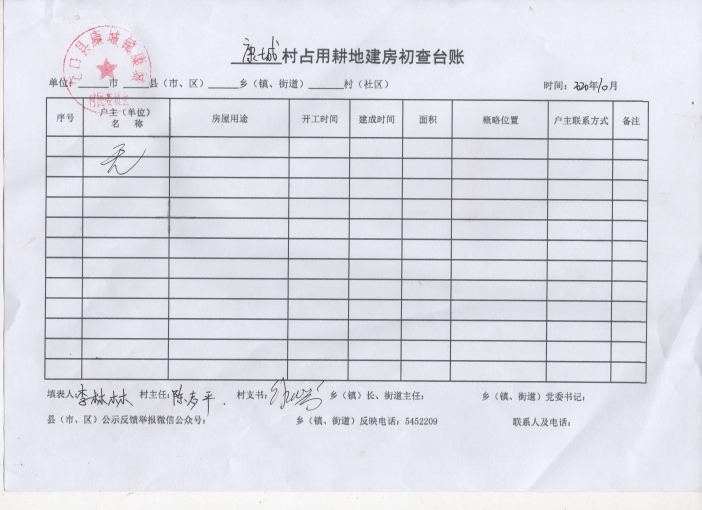 康城村占用耕地建房初查台账
单位：____市____县（市、区）____乡（镇、街道）____村（社区） 时间：2020年10月
序号 户主（单位）名 称 房屋用途 开工时间 建成时间 面积 概略位置 户主联系方式 备注
无
填表人：李林林 村主任：陈 平 村支书： 乡（镇）长、街道主任： 乡（镇、街道）党委书记：
县（市、区）公示反馈举报微信公众号： 乡（镇、街道）反映电话：5452209 联系人及电话：
村民委员会